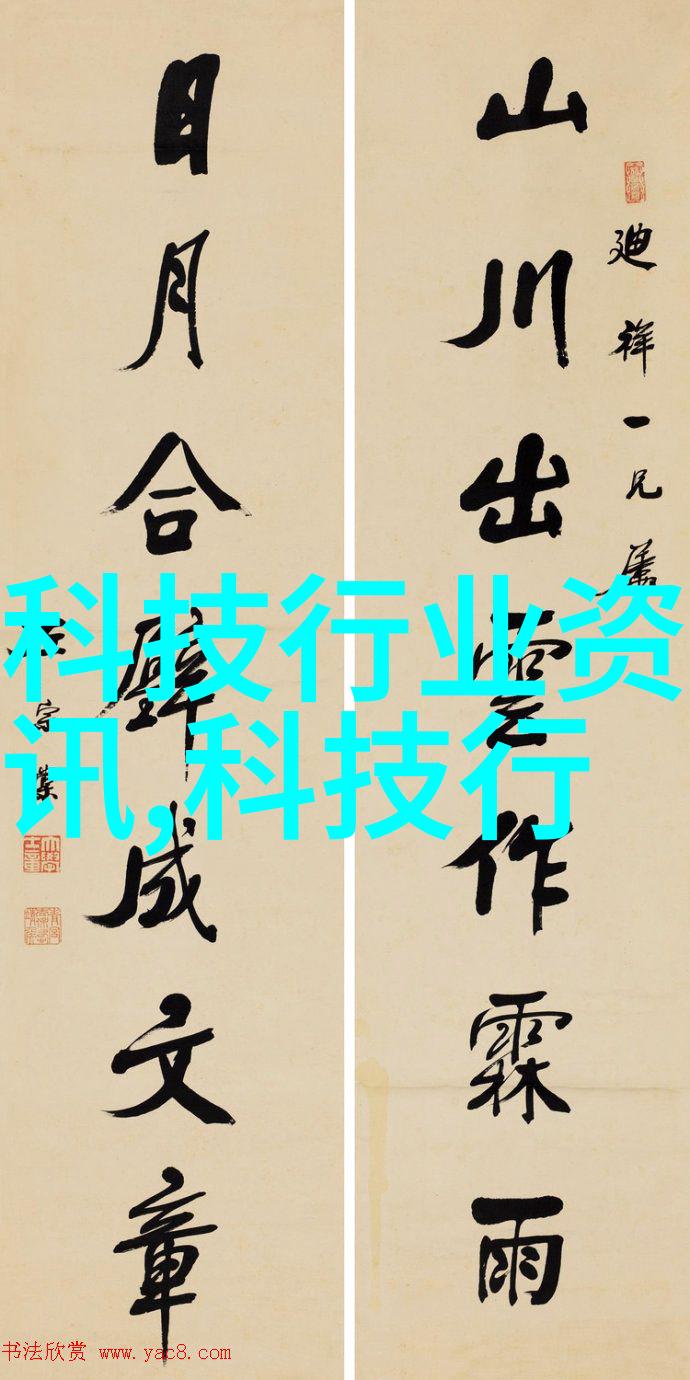 廸祥一兄屬
山川出雲作霖雨
日月合璧成文章
左宗棠
科技行业资
讯,科技行
书法欣赏 www.yac8.com